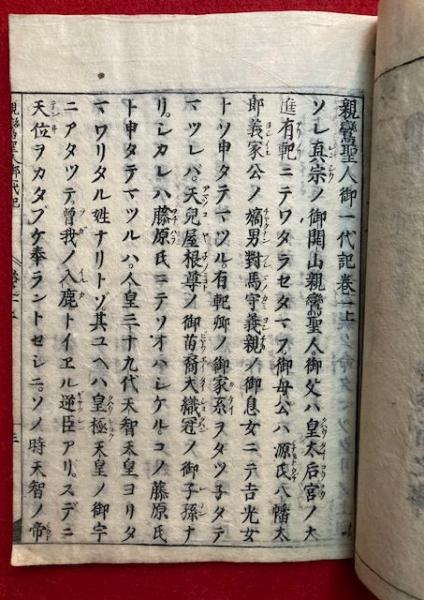 親鸞聖人御一代記巻一上
ソレ真宗ノ御開山親鸞聖人ノ御父ハ皇太后宮ノ大
進有範ニテワタラセタマフ御母公ハ源氏八幡太
郎義家公ノ嫡男對馬守義親ノ御息女ニテ吉光女
トソ申タテマツル有範卿ノ御家系ヲタツ子タテ
マツレバ。天兒屋根尊ノ御苗裔大織冠ノ御子孫ナ
リ。シカレハ藤原氏ニテソオハシケル。コノ藤原氏
ト申タテマツルハ。人皇三十九代天智天皇ヨリタ
マワリタル姓ナリトソ其ユヘハ皇極天皇ノ御宇
ニアタツテ。曽我ノ入鹿トイエル逆臣アリ。スデニ
天位ヲカタブケ奉ラントセシニ。ソノ時天智ノ帝
親鸞聖人御一代記